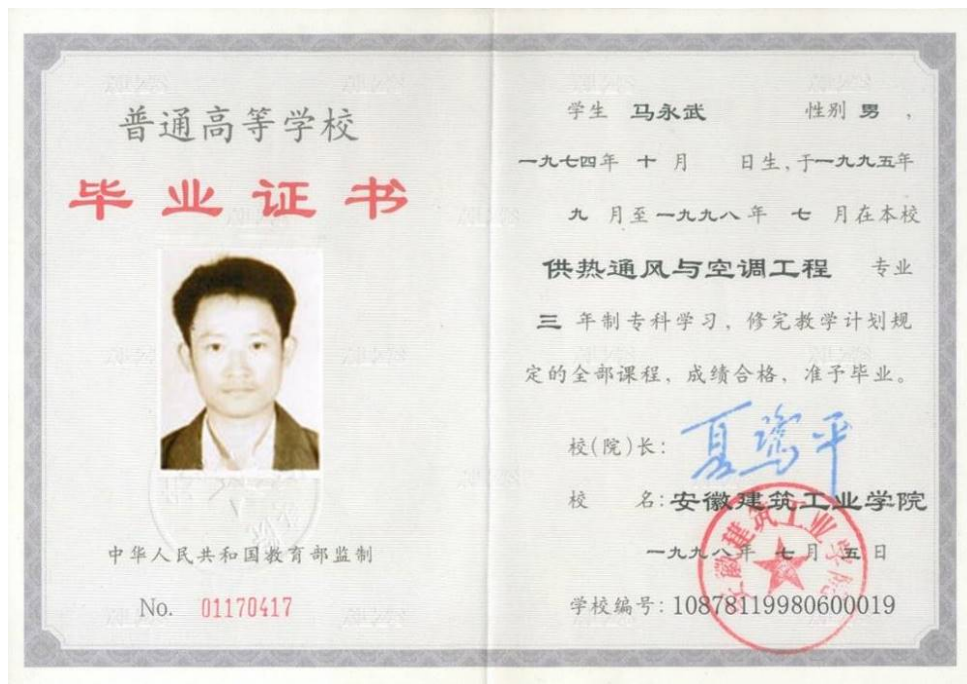 普通高等学校
毕业证书
中华人民共和国教育部监制
No. 01170417
学生 马永武 性别 男 ，
一九七四年 十 月 日生，于一九九五年
九 月至一九九八年 七 月在本校
供热通风与空调工程 专业
三 年制专科学习，修完教学计划规
定的全部课程，成绩合格，准予毕业。
校(院)长：夏鹭平
校 名：安徽建筑工业学院
一九九八年 七 月 五 日
学校编号：10878119980600019
安徽建筑工业学院